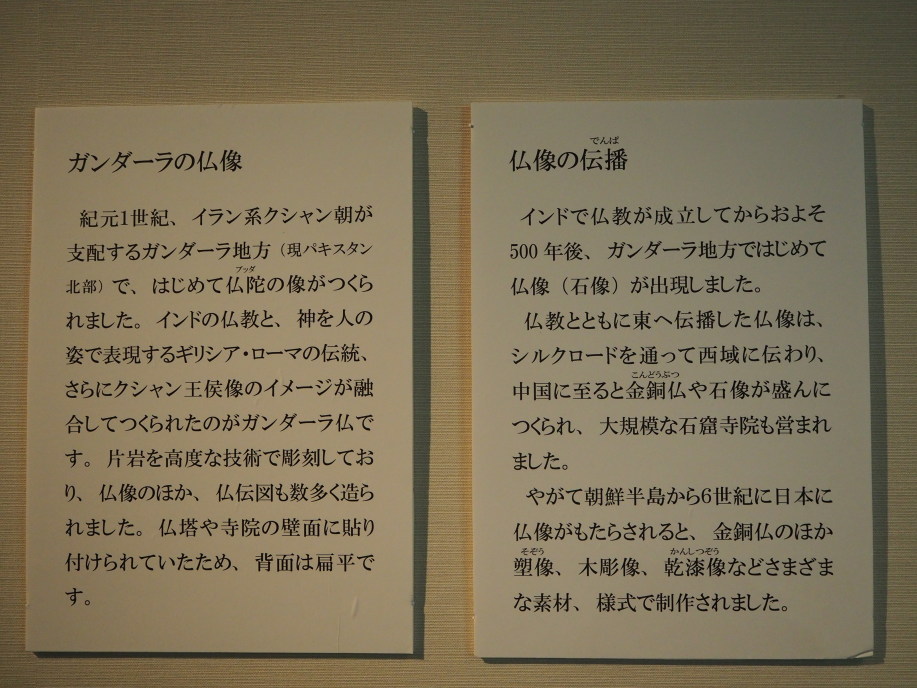 ガンダーラの仏像
紀元1世紀、イラン系クシャン朝が
支配するガンダーラ地方（現パキスタン
北部）で、はじめて仏陀の像がつくら
ブッダ
れました。インドの仏教と、神を人の
姿で表現するギリシア・ローマの伝統、
さらにクシャン王侯像のイメージが融
合してつくられたのがガンダーラ仏で
す。片岩を高度な技術で彫刻してお
り、仏像のほか、仏伝図も数多く造ら
れました。仏塔や寺院の壁面に貼り
付けられていたため、背面は扁平で
す。
でんぱ
仏像の伝播
インドで仏教が成立してからおよそ
500年後、ガンダーラ地方ではじめて
仏像（石像）が出現しました。
仏教とともに東へ伝播した仏像は、
シルクロードを通って西域に伝わり、
こんどうぶつ
中国に至ると金銅仏や石像が盛んに
つくられ、大規模な石窟寺院も営まれ
ました。
やがて朝鮮半島から6世紀に日本に
仏像がもたらされると、金銅仏のほか
そぞう かんしつぞう
塑像、木彫像、乾漆像などさまざま
な素材、様式で制作されました。